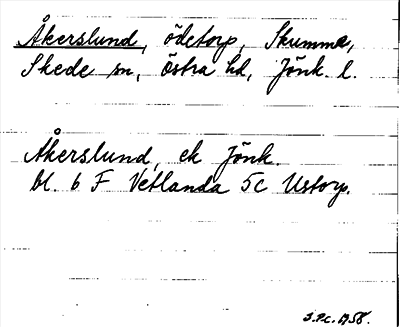 Åkerslund, ödetorp, Skumma,
Skede sn, Östra hd, Jönk. l.
Åkerslund, ek Jönk.
bl. 6 F Vetlanda 5c Ustorp.
1958.